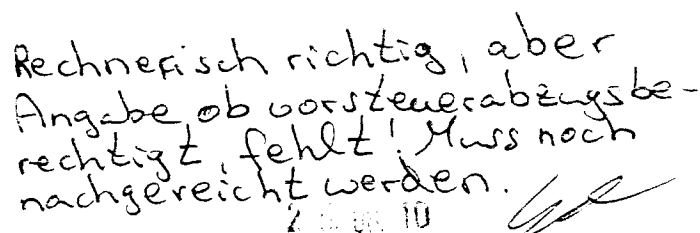 Rechnerisch richtig, aber
Angabe, ob vorsteuerabzugsbe-
rechtigt, fehlt! Muss noch
nachgereicht werden.